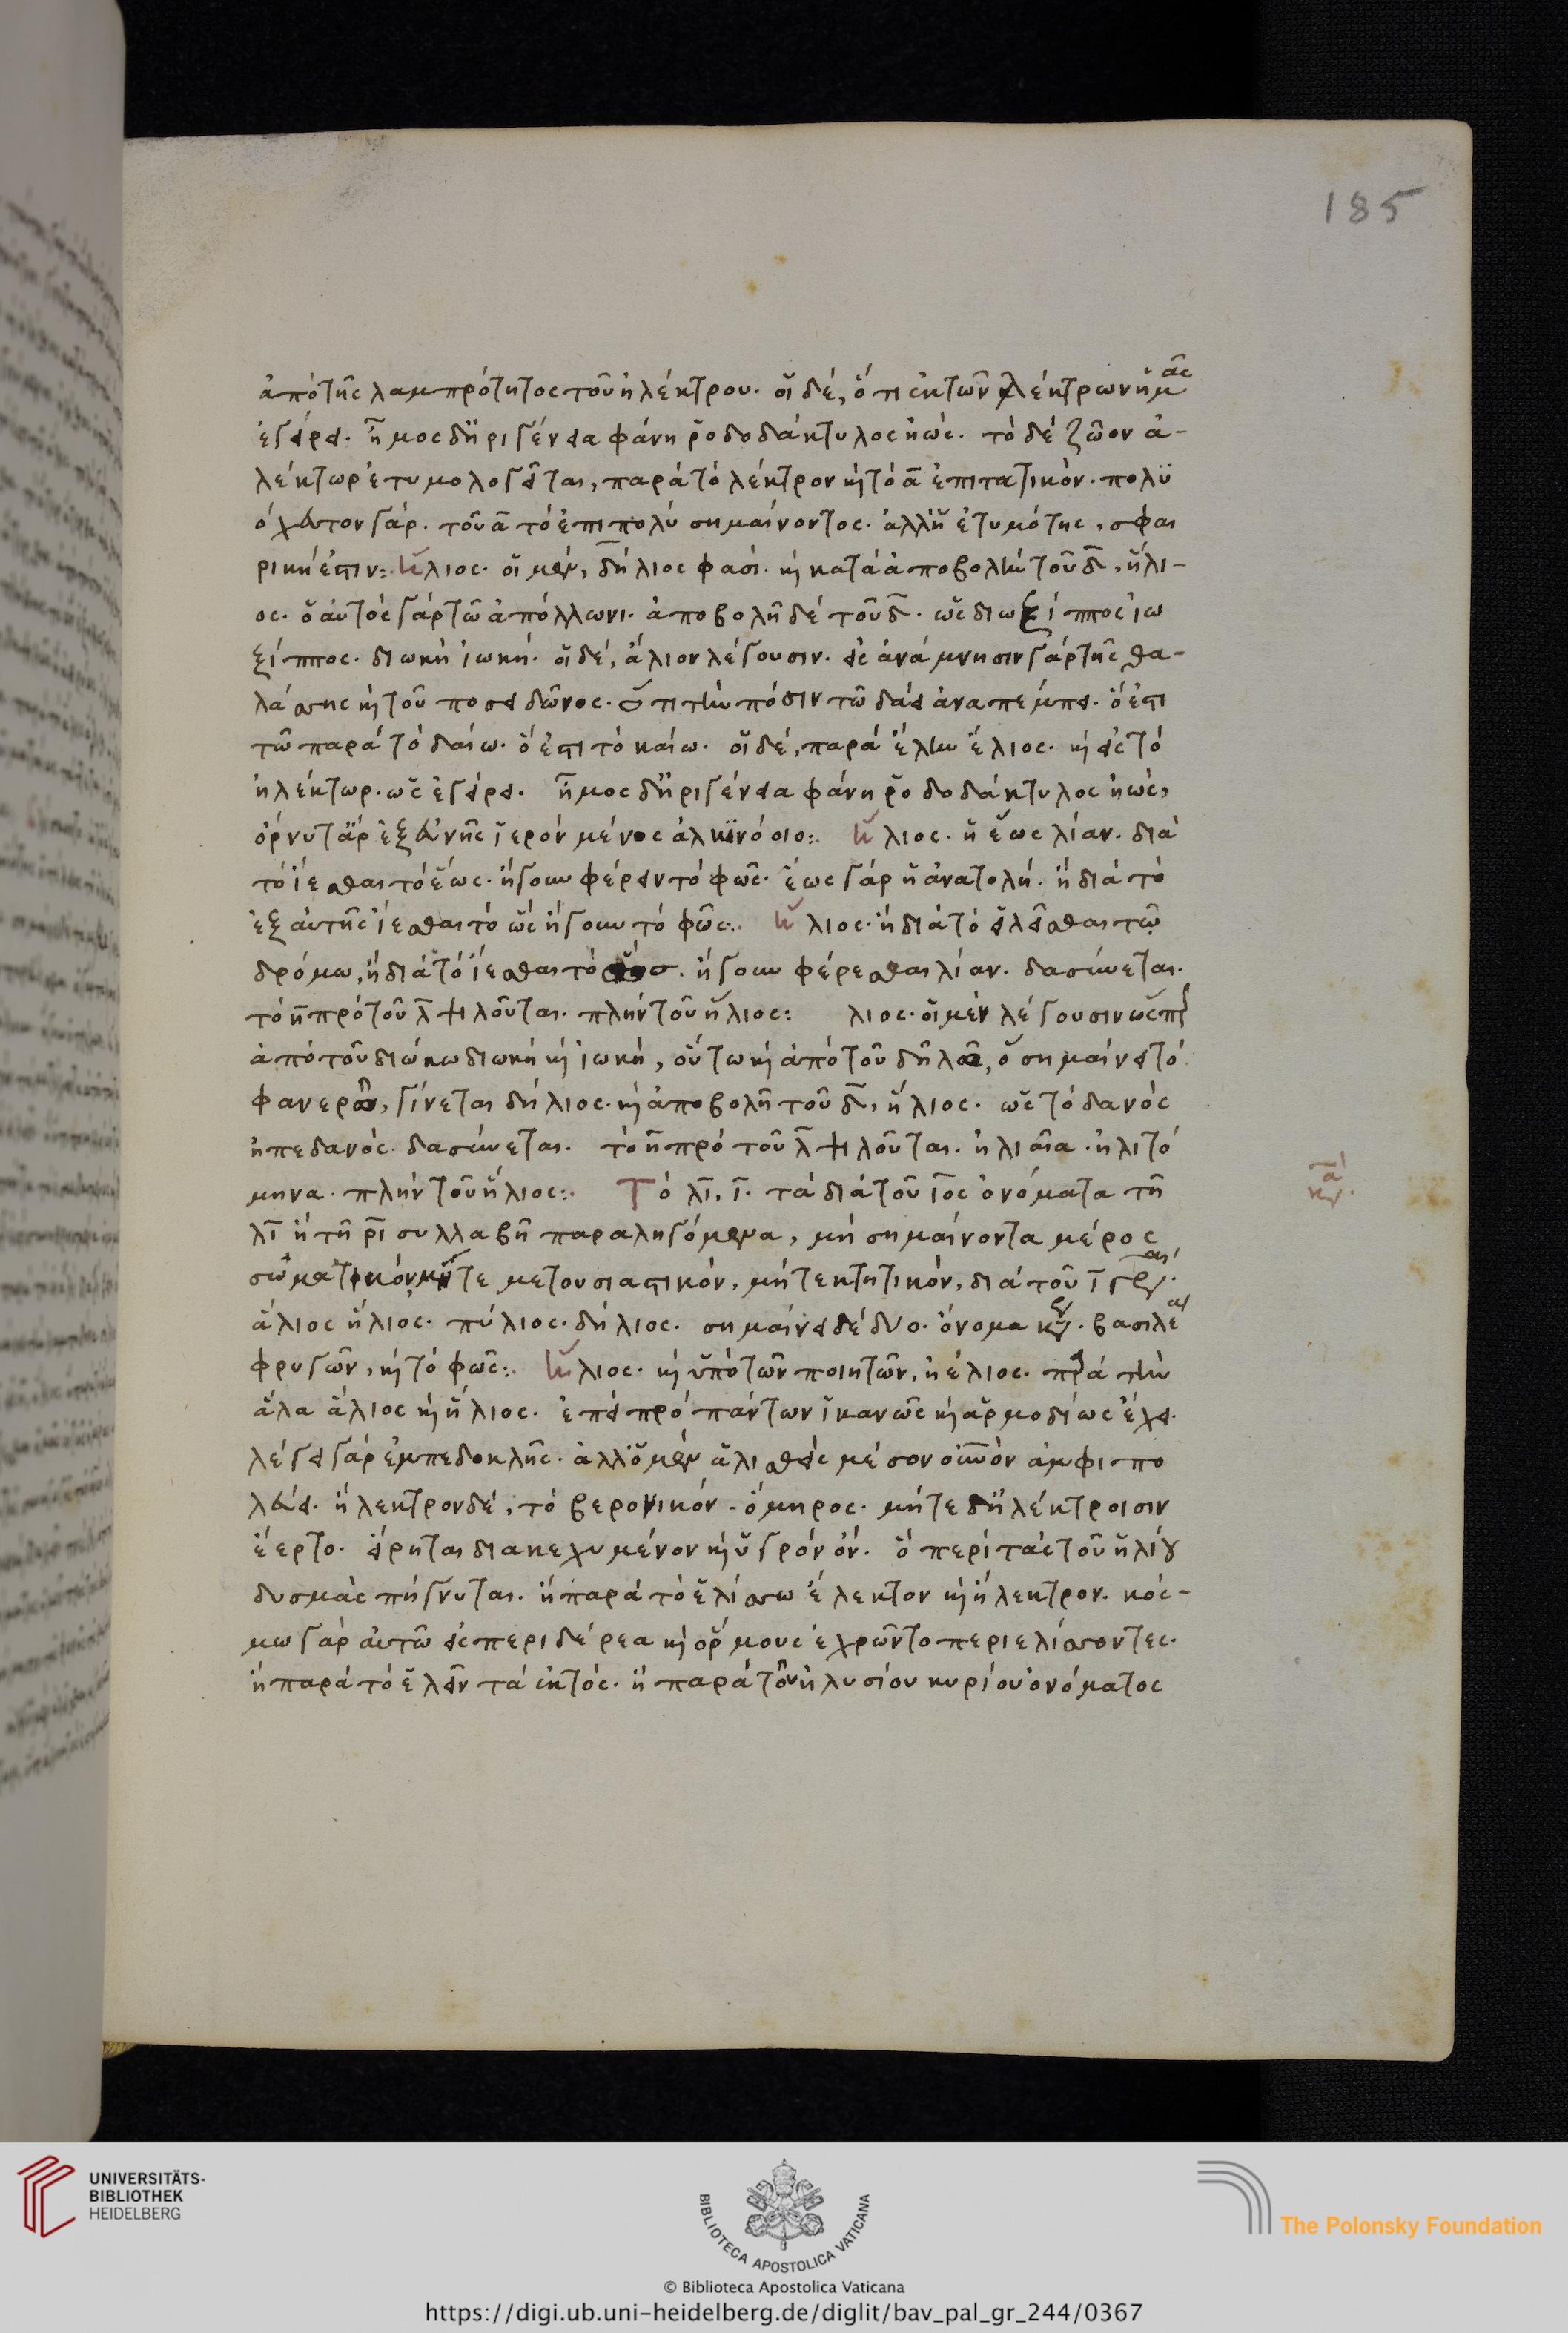 185
ἀπὸ τῆς λαμπρότητος τοῦ ἠλέκτρου. οἱ δέ, ὅτι ἐκ τῶν λέκτρων ἡμᾶς
ἐγείρει. ἦμος δ' ἠριγένεια φάνη ῥοδοδάκτυλος ἠώς. τὸ δὲ ζῶον ἀ-
λέκτωρ ἐτυμολογεῖται, παρὰ τὸ λέκτρον κ(αὶ) τὸ α ἐπιτατικόν. πολϋ
όχευτον γάρ. τοῦ α τὸ ἐπιπολὺ σημαίνοντος. ἀλλ' ἡ ἐτυμότης, σφαι
ρική ἐστιν: ἥλιος. οἱ μέν, δήλιος φασί. κ(αὶ) κατὰ ἀποβολὴν τοῦ δ, ἥλι-
ος. ὁ αὐτὸς γὰρ τῶ ἀπόλλωνι. ἀποβολῆ δὲ τοῦ δ. ὡς διωξίππος ἰω
ξίππος. διωκή ἰωκή. οἱ δέ, ἅλιον λέγουσιν. εἰς ἀνάμνησιν γὰρ τῆς θα-
λάσσης κ(αὶ) τοῦ ποσειδῶνος. ὅτι τὴν πόσιν τῶ δάει ἀναπέμπει. ὅ ἐστι
τῶ παρὰ τὸ δαίω. ὅ ἐστι τὸ καίω. οἱ δέ, παρὰ ἕλην ἕλιος. κ(αὶ) εἰς τὸ
ἠλέκτωρ. ὡς ἐγείρει. ἦμος δ' ἠριγένεια φάνη ῥοδοδάκτυλος ἠώς,
ὄρνυτ' ἄρ ἐξ εὐνῆς ἱερὸν μένος ἀλκινόοιο: ἥλιος. ἡ ἕως λίαν. διὰ
τὸ ἵεσθαι τὸ ἕως. ἤγουν φέρειν τὸ φῶς. ἕως γὰρ ἡ ἀνατολή. ἢ διὰ τὸ
ἐξ αὐτῆς ἵεσθαι τὸ ὥς ἤγουν τὸ φῶς: ἥλιος. ἢ διὰ τὸ εἱλεῖσθαι τῶ
δρόμω, ἢ διὰ τὸ ἵεσθαι τὸ ἤγουν φέρεσθαι λίαν. δασύνεται.
τὸ η πρὸ τοῦ λ ψιλοῦται. πλὴν τοῦ ἥλιος: λιος. οἱ μὲν λέγουσιν ὥσπερ
ἀπὸ τοῦ διώκω διωκή κ(αὶ) ἰωκή, οὕτω κ(αὶ) ἀπὸ τοῦ δηλῶ, ὃ σημαίνει τὸ
φανερῶ, γίνεται δήλιος. κ(αὶ) ἀποβολῆ τοῦ δ, ἥλιος. ὡς τὸ δανός
ἠπεδανός. δασύνεται. τὸ η πρὸ τοῦ λ ψιλοῦται. ἡλιαῖα. ἠλιτό
μηνα. πλὴν τοῦ ἥλιος: Τὸ λι, ι. τὰ διὰ τοῦ ιος ὀνόματα τῆ
λι ἢ τῆ ρι συλλαβῆ παραληγόμενα, μὴ σημαίνοντα μέρος
σωματικόν, μήτε μετουσιαστικόν, μήτε κτητικόν, διὰ τοῦ ι γρ(άφεται).
ἅλιος ἥλιος. πύλιος. δήλιος. σημαίνει δὲ δύο. ὄνομα κύ(ριον). βασιλέ(ως)
φρυγῶν, κ(αὶ) τὸ φῶς: ἥλιος. κ(αὶ) ὑπὸ τῶν ποιητῶν, ἠέλιος. παρὰ τὴν
ἅλα ἅλιος κ(αὶ) ἥλιος. ἐπεὶ πρὸ πάντων ἱκανῶς κ(αὶ) ἁρμοδίως ἔχει.
λέγει γὰρ ἐμπεδοκλῆς. ἀλλ' ὁ μὲν ἁλισθεὶς μέσον οὐ(ρα)νὸν ἀμφιπο
λεύει. ἤλεκτρον δέ, τὸ βερονικόν. ὅμηρος. μήτε δ' ἠλέκτροισιν
ἔερτο. εἴρηται διακεχυμένον κ(αὶ) ὑγρὸν ὄν. ὃ περὶ τὰς τοῦ ἡλίου
δυσμὰς πήγνυται. ἢ παρὰ τὸ ἑλίσσω ἕλεκτον κ(αὶ) ἤλεκτρον. κόσ-
μω γὰρ αὐτῶ εἰς περιδέρεα κ(αὶ) ὅρμους ἐχρῶντο περιελίσσοντες.
ἢ παρὰ τὸ ἕλειν τὰ ἐκτός. ἢ παρὰ τοῦ ἠλυσίου κυρίου ὀνόματος
UNIVERSITÄTS-
BIBLIOTHEK
HEIDELBERG
BIBLIOTECA APOSTOLICA VATICANA
The Polonsky Foundation
© Biblioteca Apostolica Vaticana
https://digi.ub.uni-heidelberg.de/diglit/bav_pal_gr_244/0367